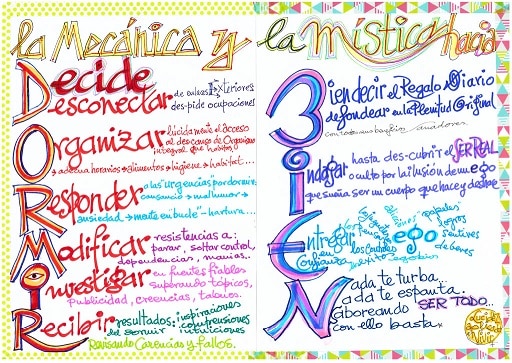 la Mecánica y
Decide
Desconectar de ondas Exteriores
des-pide ocupaciones
Organizar lúcidamente el acceso
al descanso de Organismo
integral que habitas
→ adecua horarios → alimentos → higiene → hábitat...
Responder a las urgencias por dormir:
cansancio → malhumor →
ansiedad → mente en bucle - hartura...
Modificar resistencias a:
parar, soltar control,
dependencias, manías..
Investigar en fuentes fiables
superando tópicos,
publicidad, creencias, tabúes.
Recibir resultados: inspiraciones
del dormir comprensiones
intuiciones
Revisando Carencias y fallos.
la mística hacia
Biendecir el Regalo Diario
de fondear en la Plenitud Original
con todos
Indagar hasta des-cubrir el SER REAL
oculto por la ilusión de un ego
que sueña ser un cuerpo que hace y deshace
Entregar
en Confianza
los Controles
ego
papeles
logros
sentires
deberes
Nada te turba,
nada te espanta.
Saboreando SER TODO
con ello basta.